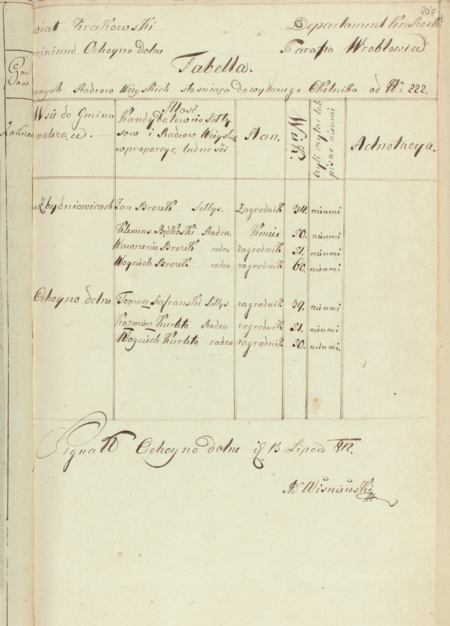 207
wiat Krakowski Departament Krakows
minium Ochoyno dolne Parafia Wroblowice
Tabella.
onych Radców Wieyskich stosuiąca do wydanego Okólnika od Nro 222.
Wsiś do Gminu należące. Ilość Kandydatowie Sołtysow i Radcow Wieyskich w proporcyę ludności Stan. Wiek. czyli czyta lub pisze nieumi Adnotacya.
Zbydniowicach Jan Brozek Sołtys. Zagrodnik 34. nieumi
Klemens Bętkoski Radca. Kmieć 50. nieumi
Wawrzeniec Brozek radca zagrodnik 51. nieumi.
Woyciech Brozek radca zagrodnik 60. nieumi.
Ochoyno dolne Tomasz Szafranski Sołtys zagrodnik 34. nieumi.
Kazmierz Kurbto Radca zagrodnik 31. nieumi.
Woyciech Kurbto radca zagrodnik 30. nieumi.
Signatt Ochoyno dolne d 13 Lipca 812.
Wisniewski